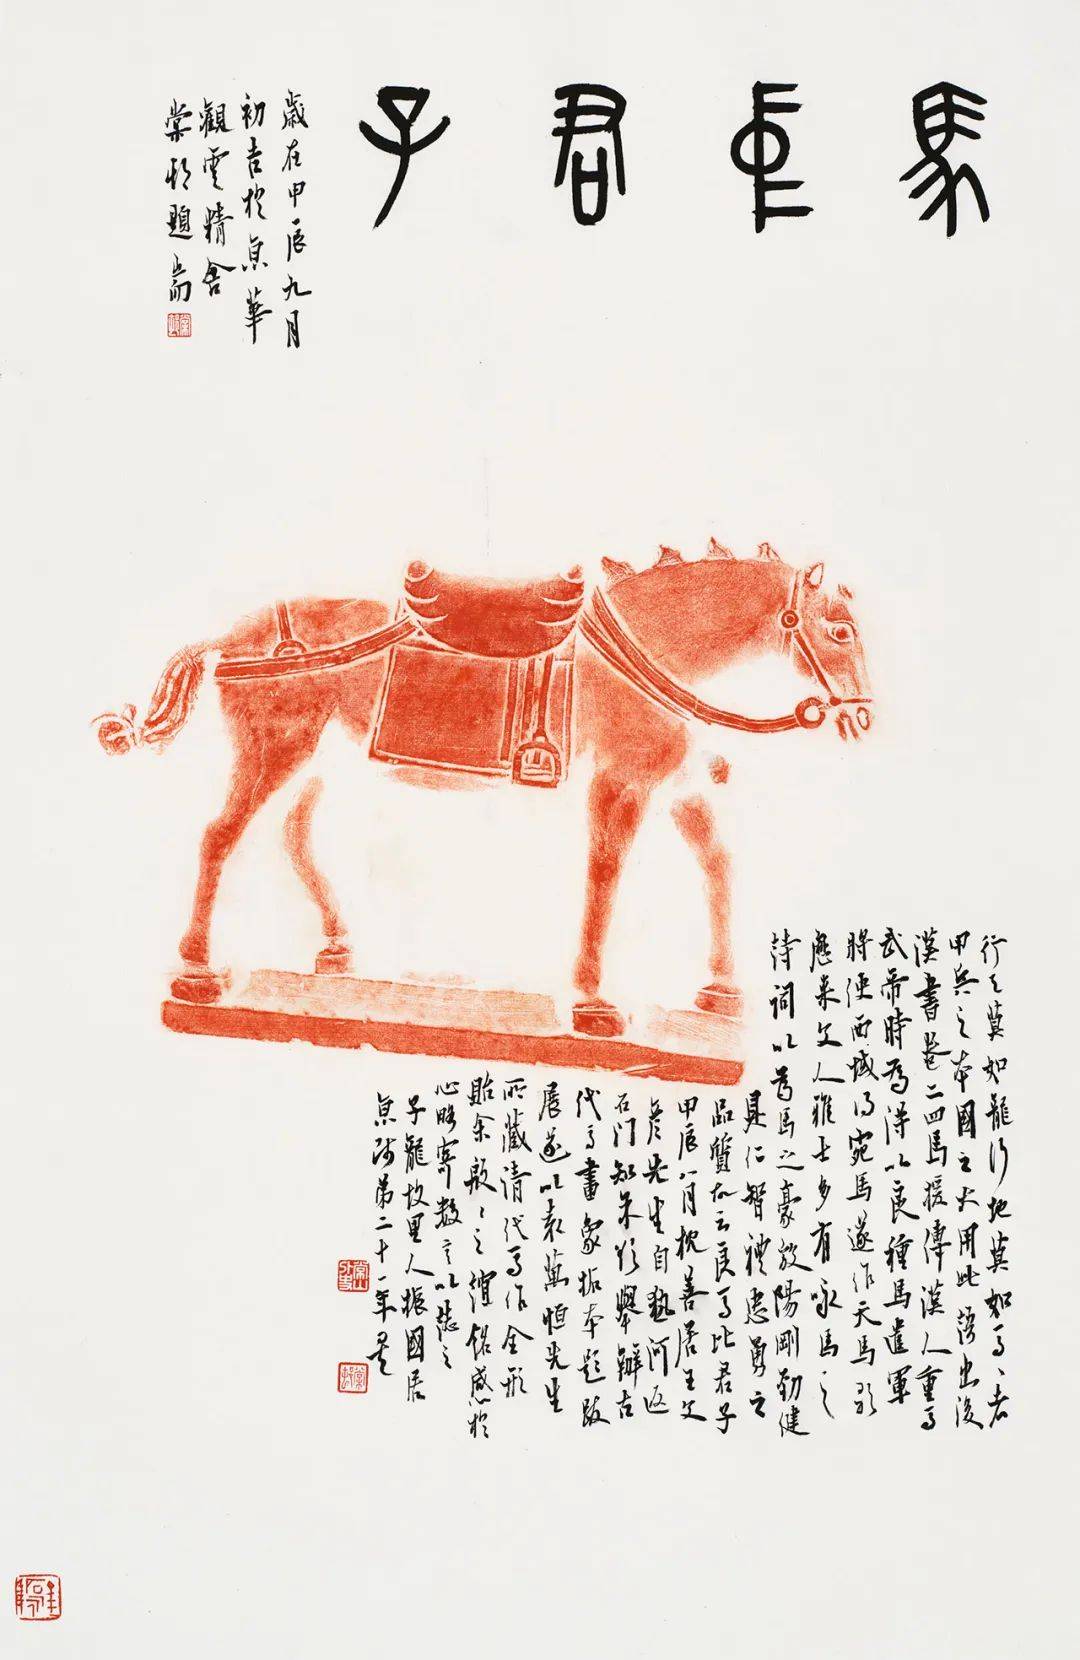 馬中君子
歲在甲辰九月
初吉於京華
觀雲精舍
棠村題耑
行天莫如龍行地莫如馬、者
甲兵之本國之大用此語出後
漢書卷二四馬援傳漢人重馬
武帝時為得以良種馬遣軍
將使西域得宛馬遂作天馬歌
歷來文人雅士多有咏馬之
詩詞以為馬之豪放陽剛勁健
具仁智禮忠勇之
品質故云良馬比君子
甲辰八月枕善居王文
彥先生自熱河返
石門知朱欣舉辦古
代馬畫象拓本題跋
展遂以袁蔭恒先生
所藏清代馬作全形
貽余殷〻之誼銘感於
心略寄數言以誌之
子龍故里人振國居
京師第二十一年